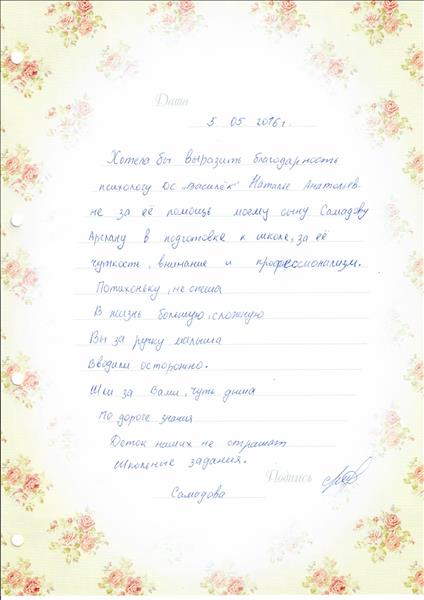 Дата
5 05 2016г.
Хотела бы выразить благодарность
психологу ДС "Василёк" Наталье Анатольев-
не за её помощь моему сыну Самадову
Арслану в подготовке к школе, за её
чуткость, внимание и профессионализм.
Потихоньку, не спеша
В жизнь большую, сложную
Вы за ручку малыша
Вводили осторожно.
Шли за Вами, чуть дыша
По дороге знания
Деток наших не страшат
Школьные задания.
Подпись
Самадова